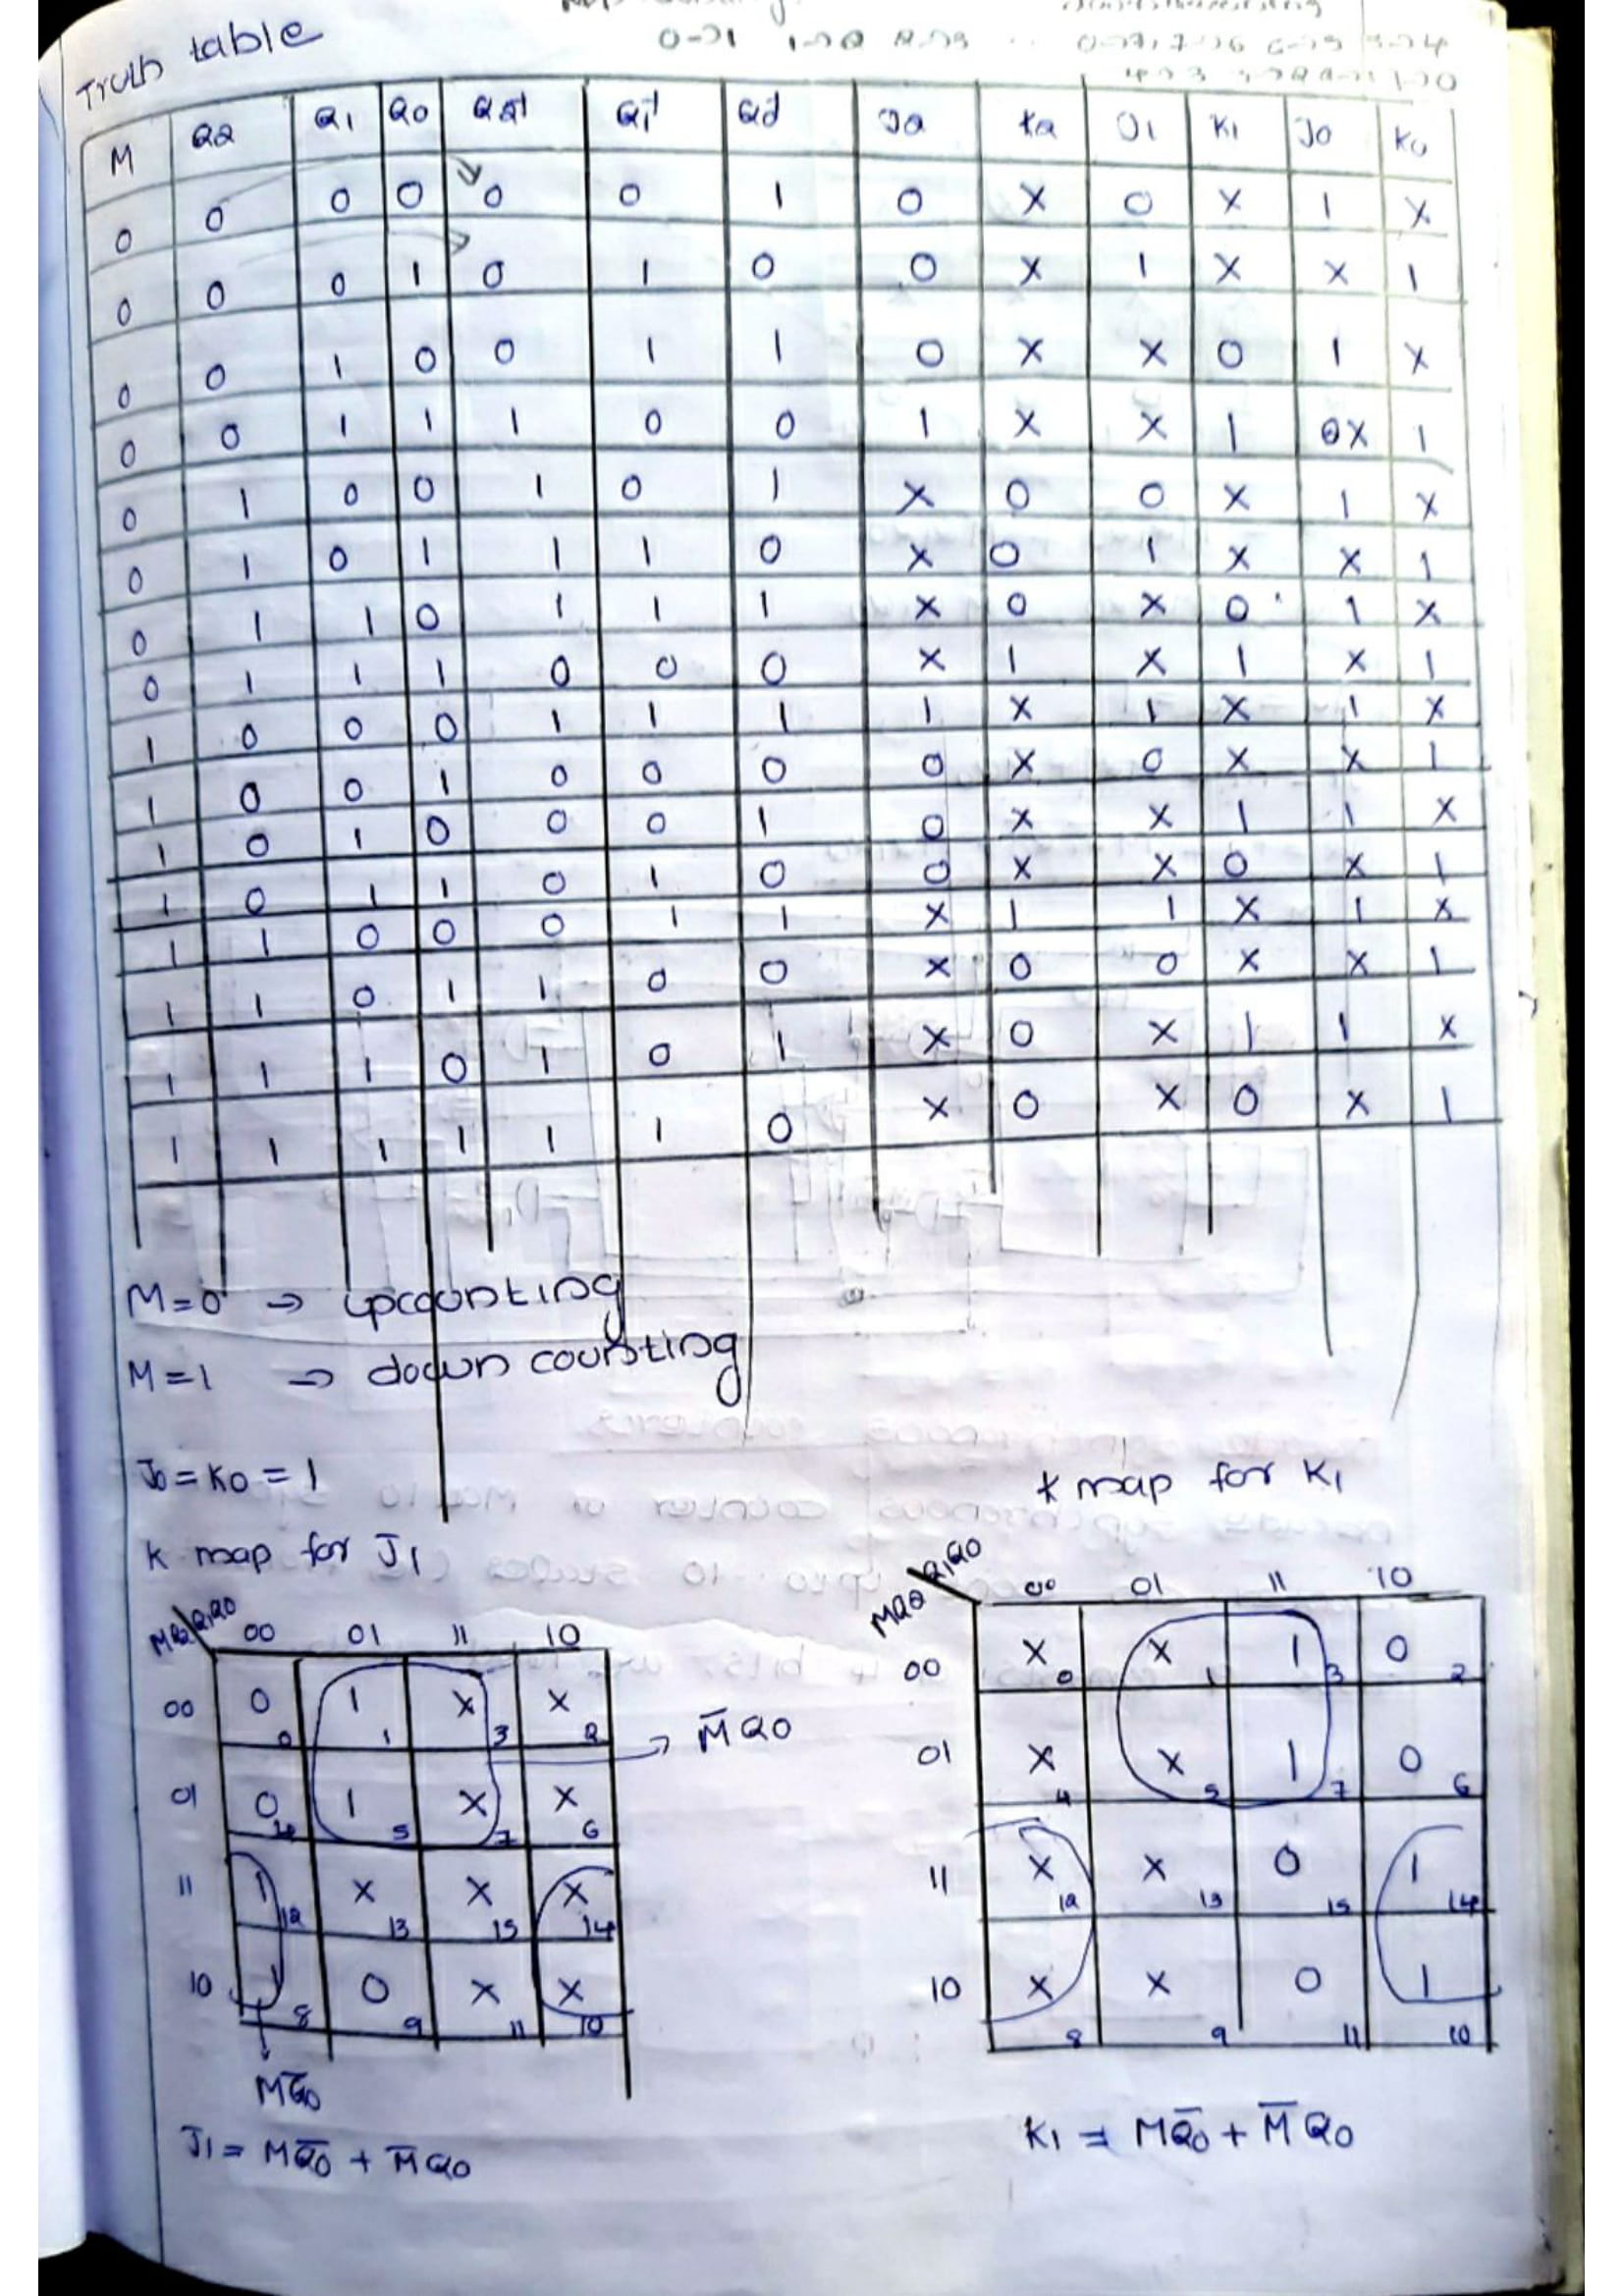 Truth table
0→1 1→2 2→3 .. 0→7, 7→6 6→5 5→4
4→3 3→2 2→1 1→0
M Q2 Q1 Q0 Q2+ Q1+ Q0+ J2 K2 J1 K1 J0 K0
0 0 0 0 0 0 1 0 X 0 X 1 X
0 0 0 1 0 1 0 0 X 1 X X 1
0 0 1 0 0 1 1 0 X X 0 1 X
0 0 1 1 1 0 0 1 X X 1 0X 1
0 1 0 0 1 0 1 X 0 0 X 1 X
0 1 0 1 1 1 0 X 0 1 X X 1
0 1 1 0 1 1 1 X 0 X 0 1 X
0 1 1 1 0 0 0 X 1 X 1 X 1
1 0 0 0 1 1 1 1 X 1 X 1 X
1 0 0 1 0 0 0 0 X 0 X X 1
1 0 1 0 0 0 1 0 X X 1 1 X
1 0 1 1 0 1 0 0 X X 0 X 1
1 1 0 0 0 1 1 X 1 1 X 1 X
1 1 0 1 1 0 0 X 0 0 X X 1
1 1 1 0 1 0 1 X 0 X 1 1 X
1 1 1 1 1 1 0 X 0 X 0 X 1
M=0 → upcounting
M=1 → down counting
J0 = K0 = 1
K map for J1
MQ2 Q1Q0 00 01 11 10
00 0 0 1 1 X 3 X 2
01 0 4 1 5 X 7 X 6
11 1 12 X 13 X 15 X 14
10 1 8 0 9 X 11 X 10
M̅Q0
MQ̅0
J1 = MQ̅0 + M̅Q0
K map for K1
MQ2 Q1Q0 00 01 11 10
00 X 0 X 1 1 3 0 2
01 X 4 X 5 1 7 0 6
11 X 12 X 13 0 15 1 14
10 X 8 X 9 0 11 1 10
K1 = MQ̅0 + M̅Q0